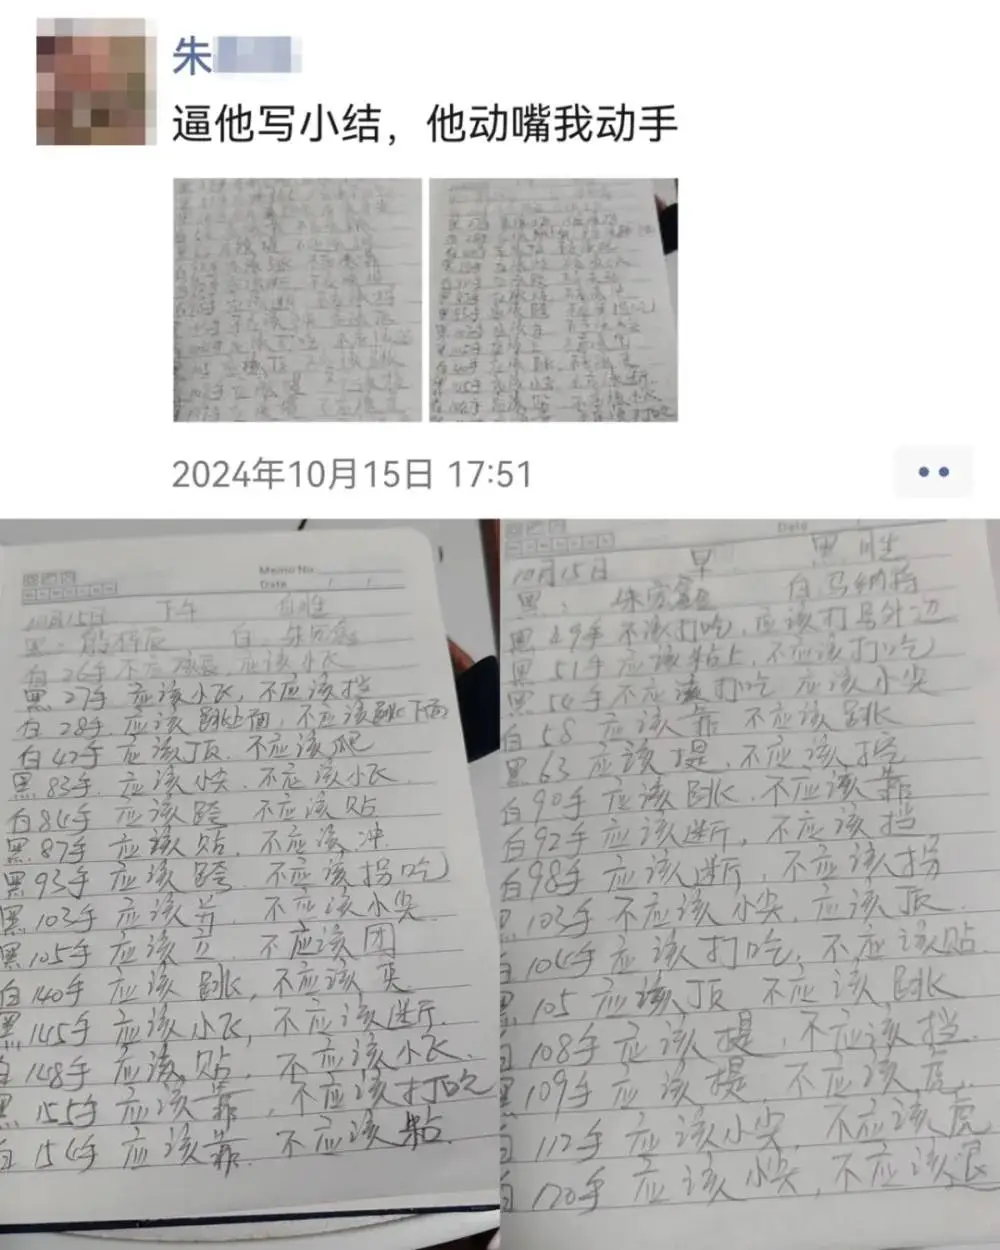 朱
逼他写小结，他动嘴我动手
2024年10月15日 17:51
Memo No.
Date
10月15日 下午 白胜
黑： 白：朱
白26手不应该长，应该小飞
黑27手 应该小飞，不应该挡
白28手 应该跳上面，不应该跳下面
白42手 应该顶 不应该爬
黑83手 应该小尖 不应该小飞
白84手 应该跨 不应该贴
黑87手 应该贴，不应该冲
黑93手 应该跨 不应该拐吃
黑103手 应该并 不应该小尖
黑105手 应该立 不应该团
白140手 应该跳，不应该夹
黑145手 应该小飞，不应该断
白148手 应该贴，不应该小飞
黑155手 应该靠，不应该打吃
白154手 应该靠 不应该粘
Date
10月15日 早 黑胜
黑： 白
黑49手不该打吃，应该打另外边
黑51手应该粘上，不应该打吃
黑54手不应该打吃 应该小尖
白58 应该靠 不应该跳
黑63 应该提，不应该挖
白90手 应该跳，不应该靠
白92手 应该断，不应该挡
白98手 应该断，不应该拐
黑103手 不应该小尖，应该顶
白104手 应该打吃，不应该贴
黑105 应该顶 不应该跳
白108手 应该提，不应该挡
黑109手 应该提，不应该虎
白112手 应该小尖 不应该虎
白170手 应该小尖，不应该退